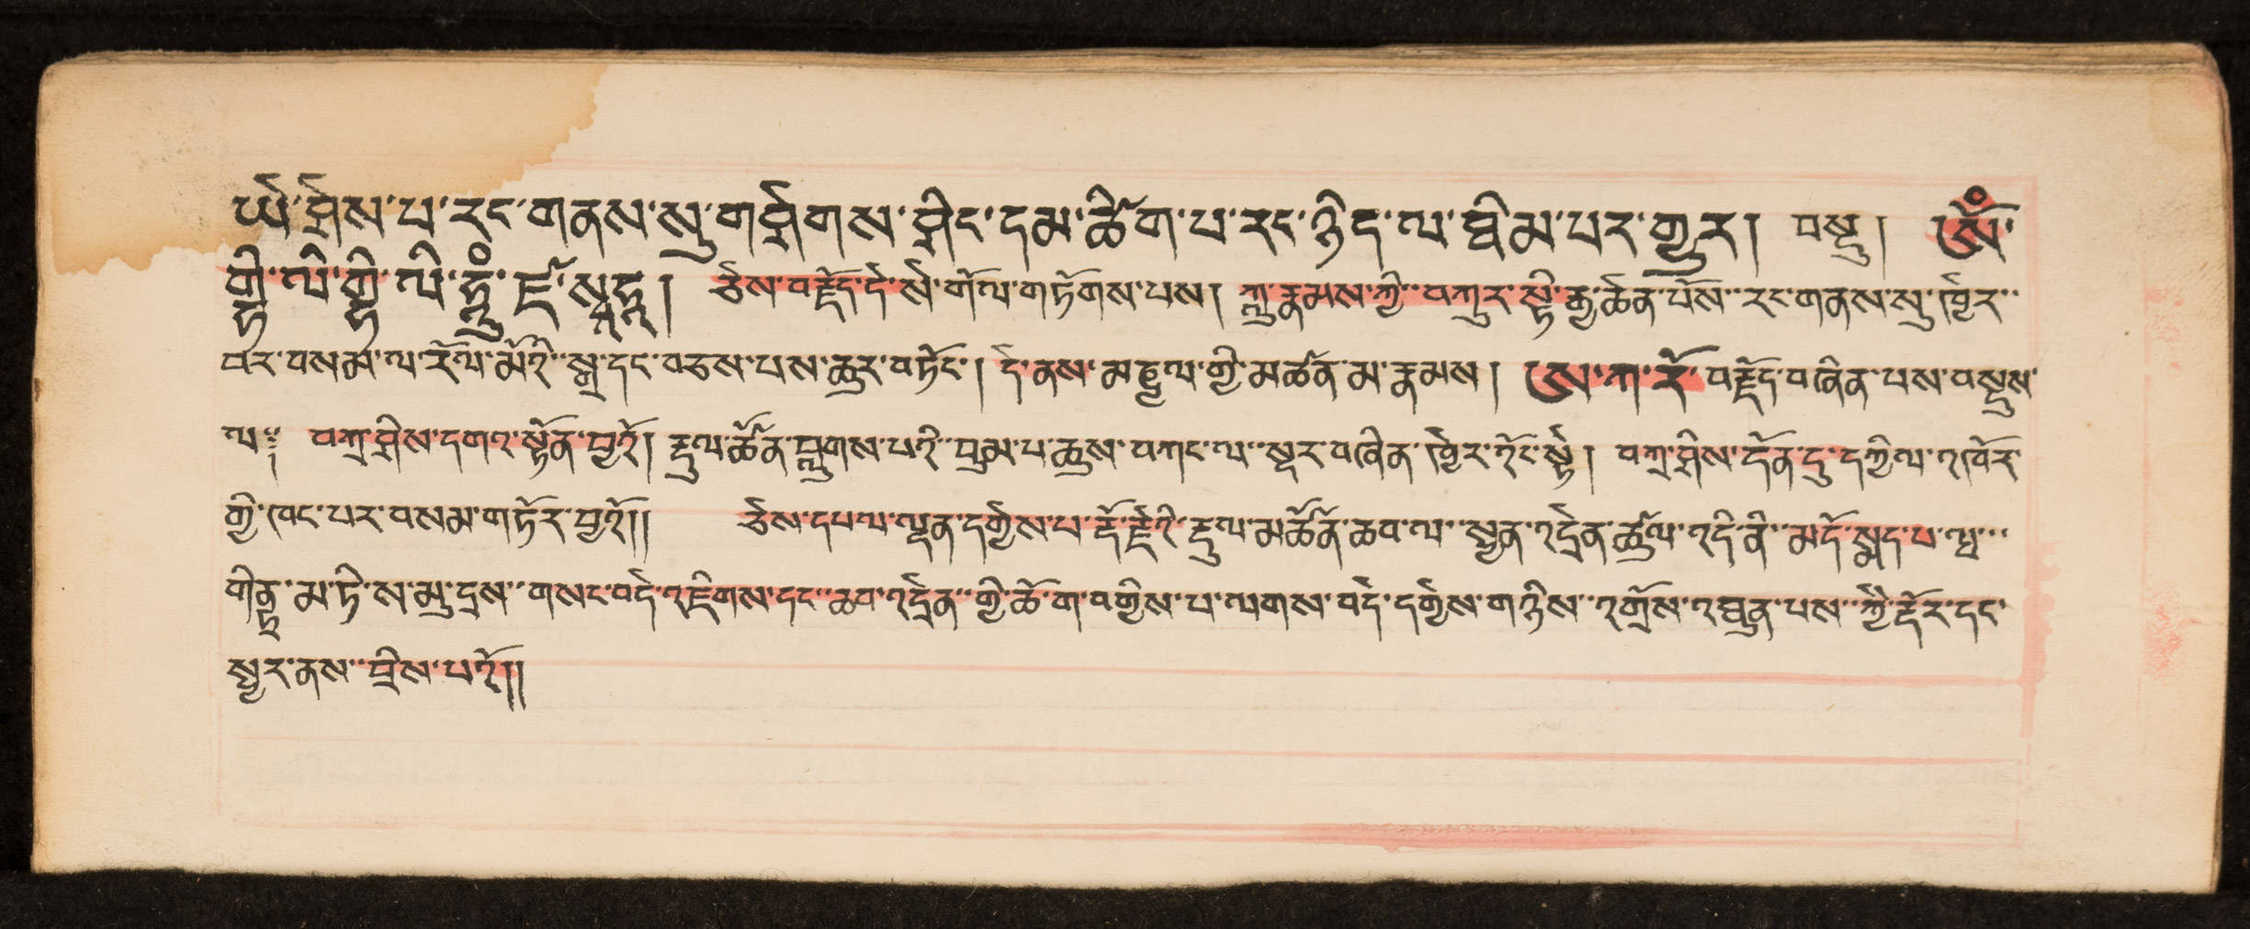 ཡེ་ཤེས་པ་རང་གནས་སུ་གཤེགས་ཤིང་དམ་ཚིག་པ་རང་ཉིད་ལ་ཐིམ་པར་གྱུར། བསྡུ། ཨོཾ་
གྷི་ལི་གྷི་ལི་ཧཱུྃ་ཛཿསྭཱཧཱ། ཅེས་བརྗོད་དེ་སེ་གོལ་གཏོགས་པས། ཀླུ་རྣམས་ཀྱི་བཀུར་སྟི་རྒྱ་ཆེན་པོས་རང་གནས་སུ་ཁྱེར་
བར་བསམ་ལ་རོལ་མོའི་སྒྲ་དང་བཅས་པས་ཆུར་བཏང་། དེ་ནས་མཎྜལ་གྱི་མཚན་མ་རྣམས། ཨ་ཀ་རོ་བརྗོད་བཞིན་པས་བསྡུས་
ལ༔ བཀྲ་ཤིས་དགའ་སྟོན་བྱའོ། རྡུལ་ཚོན་བླུགས་པའི་བུམ་པ་ཆུས་བཀང་ལ་སྔར་བཞིན་ཁྱེར་འོང་སྟེ། བཀྲ་ཤིས་དོན་དུ་དཀྱིལ་འཁོར་
གྱི་ཁང་པར་བསམ་གཏོར་བྱའོ།། ཅེས་དཔལ་ལྡན་དགྱེས་པ་རྡོ་རྗེའི་རྡུལ་མཚོན་ཆབ་ལ་སྤྱན་འདྲེན་ཚུལ་འདི་ནི་མདོ་སྨད་པ་ལྦ
གིནྡྲ་མ་ཏི་ས་མུ་དྲས་གསང་བདེ་འཇིགས་དང་ཆབ་འདྲེན་གྱི་ཆོ་ག་བགྱིས་པ་ལགས་བདེ་དགྱེས་གཉིས་འགྲོས་འཐུན་པས་ཀྱེ་རྡོར་དང་
སྦྱར་ནས་བྲིས་པའོ།།